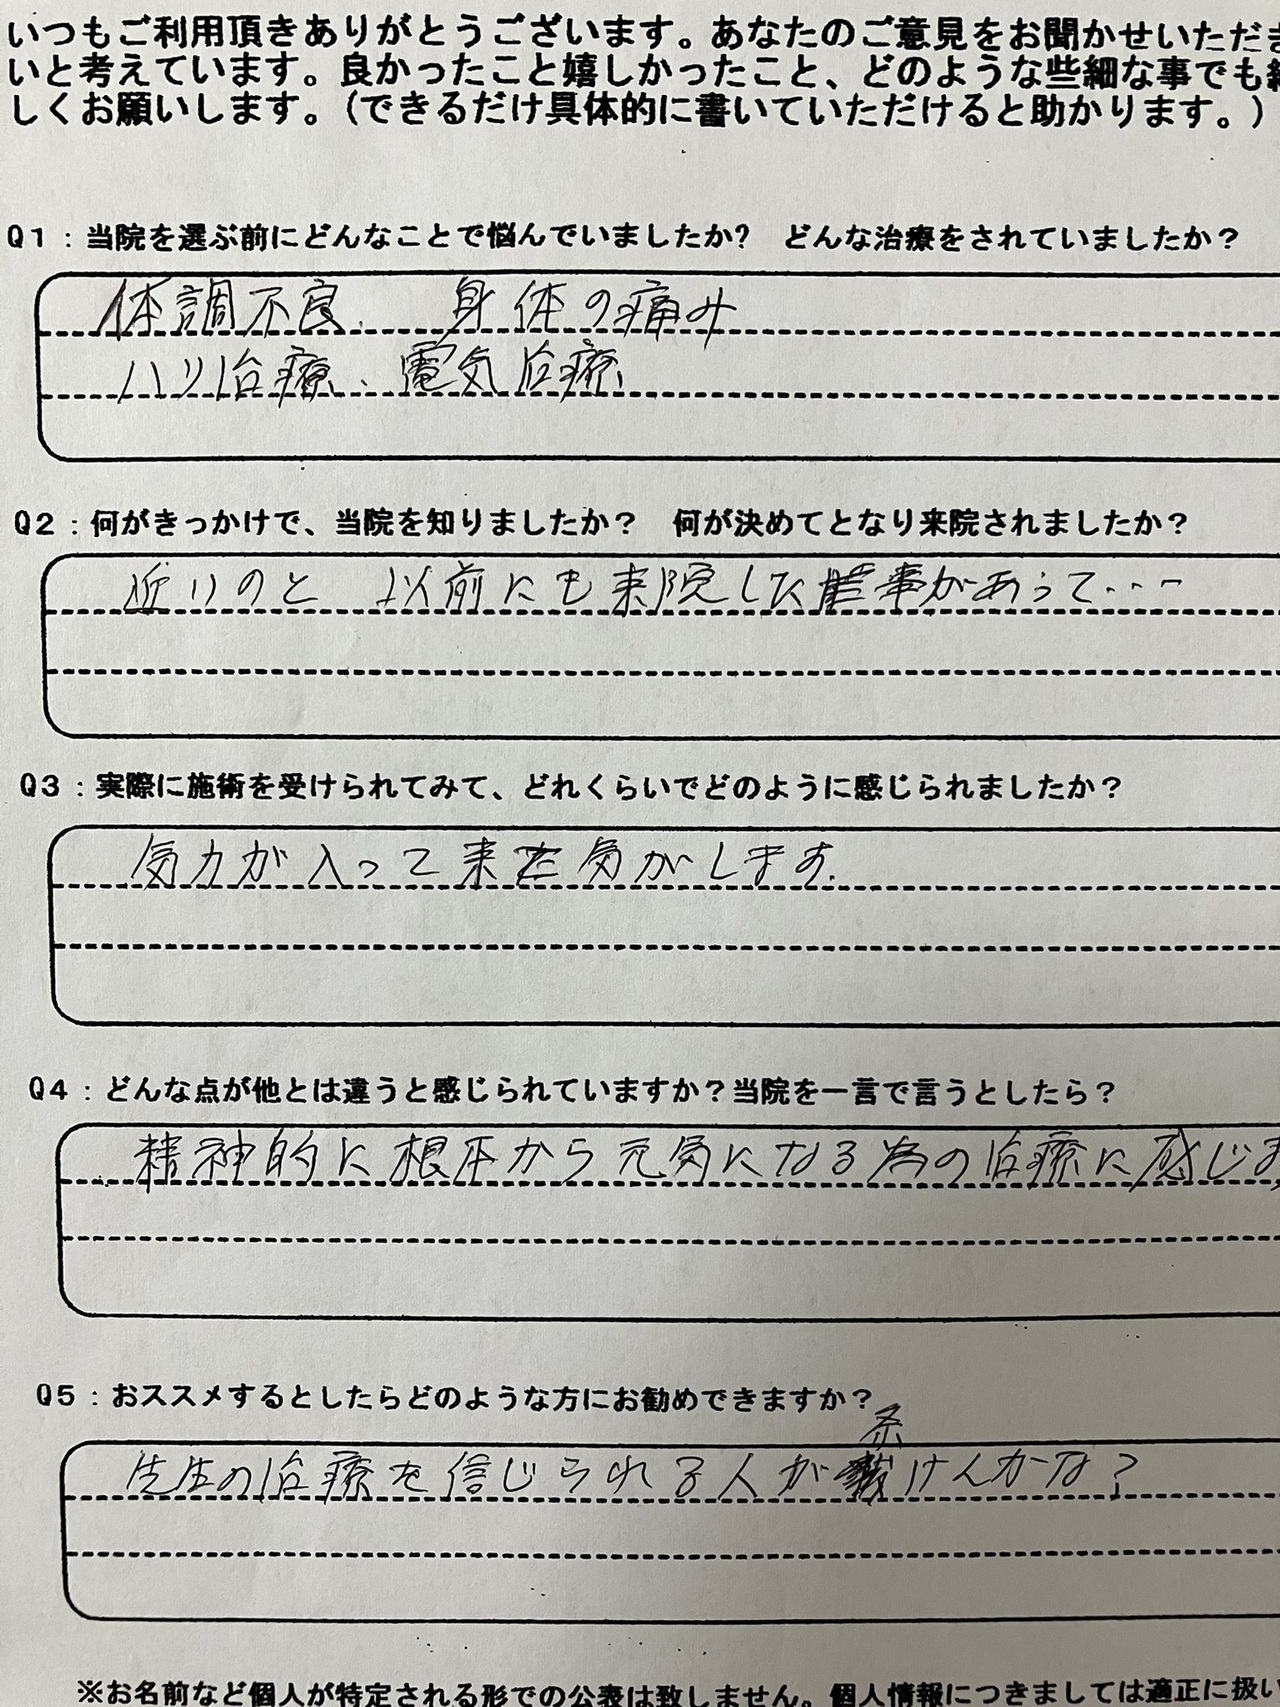 いつもご利用頂きありがとうございます。あなたのご意見をお聞かせいただき
いと考えています。良かったこと嬉しかったこと、どのような些細な事でも結
しくお願いします。(できるだけ具体的に書いていただけると助かります。)
Q1:当院を選ぶ前にどんなことで悩んでいましたか? どんな治療をされていましたか?
体調不良、 身体の痛み
ハリ治療、電気治療
Q2:何がきっかけで、当院を知りましたか? 何が決めてとなり来院されましたか?
近いのと 以前にも来院した事があって・・・
Q3:実際に施術を受けられてみて、どれくらいでどのように感じられましたか?
気力が入って来た気がします。
Q4:どんな点が他とは違うと感じられていますか?当院を一言で言うとしたら?
精神的に根本から元気になる為の治療に感じま
Q5:おススメするとしたらどのような方にお勧めできますか?
先生の治療を信じられる人が条けんかな?
※お名前など個人が特定される形での公表は致しません。個人情報につきましては適正に扱い